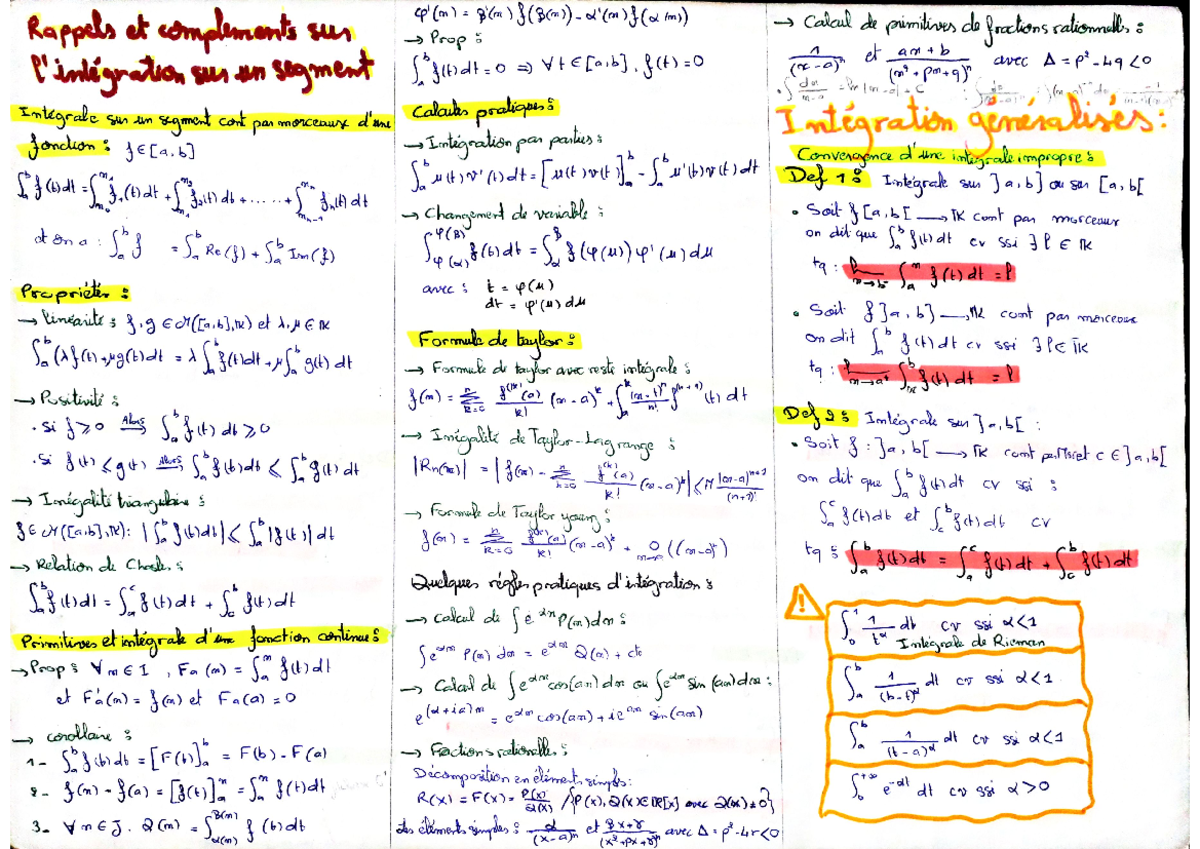 Rappels et complements sur
l'intégration sur un segment
Intégrale sur un segment cont par morceaux d'une
fonction : f∈[a,b]
∫_a^b f(t)dt = ∫_{m_0}^{m_1} f_1(t)dt + ∫_{m_1}^{m_2} f_2(t)dt + ...... + ∫_{m_{n-1}}^{m_n} f_n(t)dt
et on a : ∫_a^b f = ∫_a^b Re(f) + ∫_a^b Im(f)
Propriétés :
→ linéarité : f,g ∈ M([a,b],K) et λ,μ ∈ K
∫_a^b (λf(t)+μg(t)dt = λ∫_a^b f(t)dt + μ∫_a^b g(t)dt
→ Positivité :
. Si f ≥ 0 Alors ⟹ ∫_a^b f(t)dt ≥ 0
. Si f(t) ≤ g(t) Alors ⟹ ∫_a^b f(t)dt ≤ ∫_a^b g(t)dt
→ Inégalité triangulaire :
f ∈ M([a,b],K) : |∫_a^b f(t)dt| ≤ ∫_a^b |f(t)|dt
→ Relation de Chasles :
∫_a^b f(t)dt = ∫_a^c f(t)dt + ∫_c^b f(t)dt
Primitives et intégrale d'une fonction continue :
→ Prop : ∀x∈I , Fa(x) = ∫_a^x f(t)dt
et F'a(x) = f(x) et Fa(a) = 0
→ corollaire :
1- ∫_a^b f(t)dt = [F(t)]_a^b = F(b) - F(a)
2- f(x) - f(a) = [f(t)]_a^x = ∫_a^x f(t)dt
3- ∀x∈J . Q(x) = ∫_{α(x)}^{β(x)} f(t)dt
φ'(x) = β'(x) f(β(x)) - α'(x) f(α(x))
→ Prop :
∫_a^b f(t)dt = 0 ⟹ ∀t∈[a,b] , f(t) = 0
Calculs pratiques :
→ Intégration par parties :
∫_a^b u(t)v'(t)dt = [u(t)v(t)]_a^b - ∫_a^b u'(t)v(t)dt
→ Changement de variable :
∫_{φ(α)}^{φ(β)} f(t)dt = ∫_α^β f(φ(u))φ'(u)du
avec : t = φ(u)
dt = φ'(u)du
Formule de taylor :
→ Formule de taylor avec reste intégrale :
f(x) = Σ_{k=0}^n f^(k)(a)/k! (x-a)^k + ∫_a^x (x-t)^n/n! f^(n+1)(t)dt
→ Inégalité de Taylor-Lagrange :
|Rn(x)| = |f(x) - Σ_{k=0}^n f^(k)(a)/k! (x-a)^k| ≤ M |x-a|^{n+1}/(n+1)!
→ Formule de Taylor young :
f(x) = Σ_{k=0}^n f^(k)(a)/k! (x-a)^k + o_{x→a}((x-a)^n)
Quelques régles pratiques d'intégration :
→ calcul de ∫e^{αx}P(x)dx :
∫e^{αx} P(x)dx = e^{αx} Q(x) + cte
→ Calcul de ∫e^{αx}cos(ax)dx ou ∫e^{αx}sin(ax)dx :
e^{(α+ia)x} = e^{αx}cos(ax) + ie^{αx}sin(ax)
→ Fractions rationnelles :
Décomposition en éléments simples :
R(x) = F(x) = P(x)/Q(x) /{P(x),Q(x)∈IR[x] avec Q(x)≠0}
les éléments simples : α/(x-a)^n et βx+γ/(x²+px+q)^n avec Δ = p²-4r<0
→ Calcul de primitives de fractions rationnelles :
1/(x-a)^n et ax+b/(x²+px+q)^n avec Δ = p²-4q<0
. ∫dx/x-a = ln|x-a| + c
Intégration généralisés :
Convergence d'une intégrale impropre :
Def 1 : Intégrale sur ]a,b] ou sur [a,b[
• Soit f [a,b[ → K cont par morceaux
on dit que ∫_a^b f(t)dt cv ssi ∃ l ∈ K
tq : lim_{x→b^-} ∫_a^x f(t)dt = l
• Soit f ]a,b] → K cont par morceaux
on dit ∫_a^b f(t)dt cv ssi ∃ l ∈ K
tq : lim_{x→a^+} ∫_x^b f(t)dt = l
Def 2 : Intégrale sur ]a,b[ :
• Soit f : ]a,b[ → K cont par M et c∈]a,b[
on dit que ∫_a^b f(t)dt cv ssi :
∫_a^c f(t)dt et ∫_c^b f(t)dt cv
tq : ∫_a^b f(t)dt = ∫_a^c f(t)dt + ∫_c^b f(t)dt
!
∫_0^1 1/t^α dt cv ssi α<1
Intégrale de Rieman
∫_a^b 1/(b-t)^α dt cv ssi α<1
∫_a^b 1/(t-a)^α dt cv ssi α<1
∫_0^{+∞} e^{-αt} dt cv ssi α>0